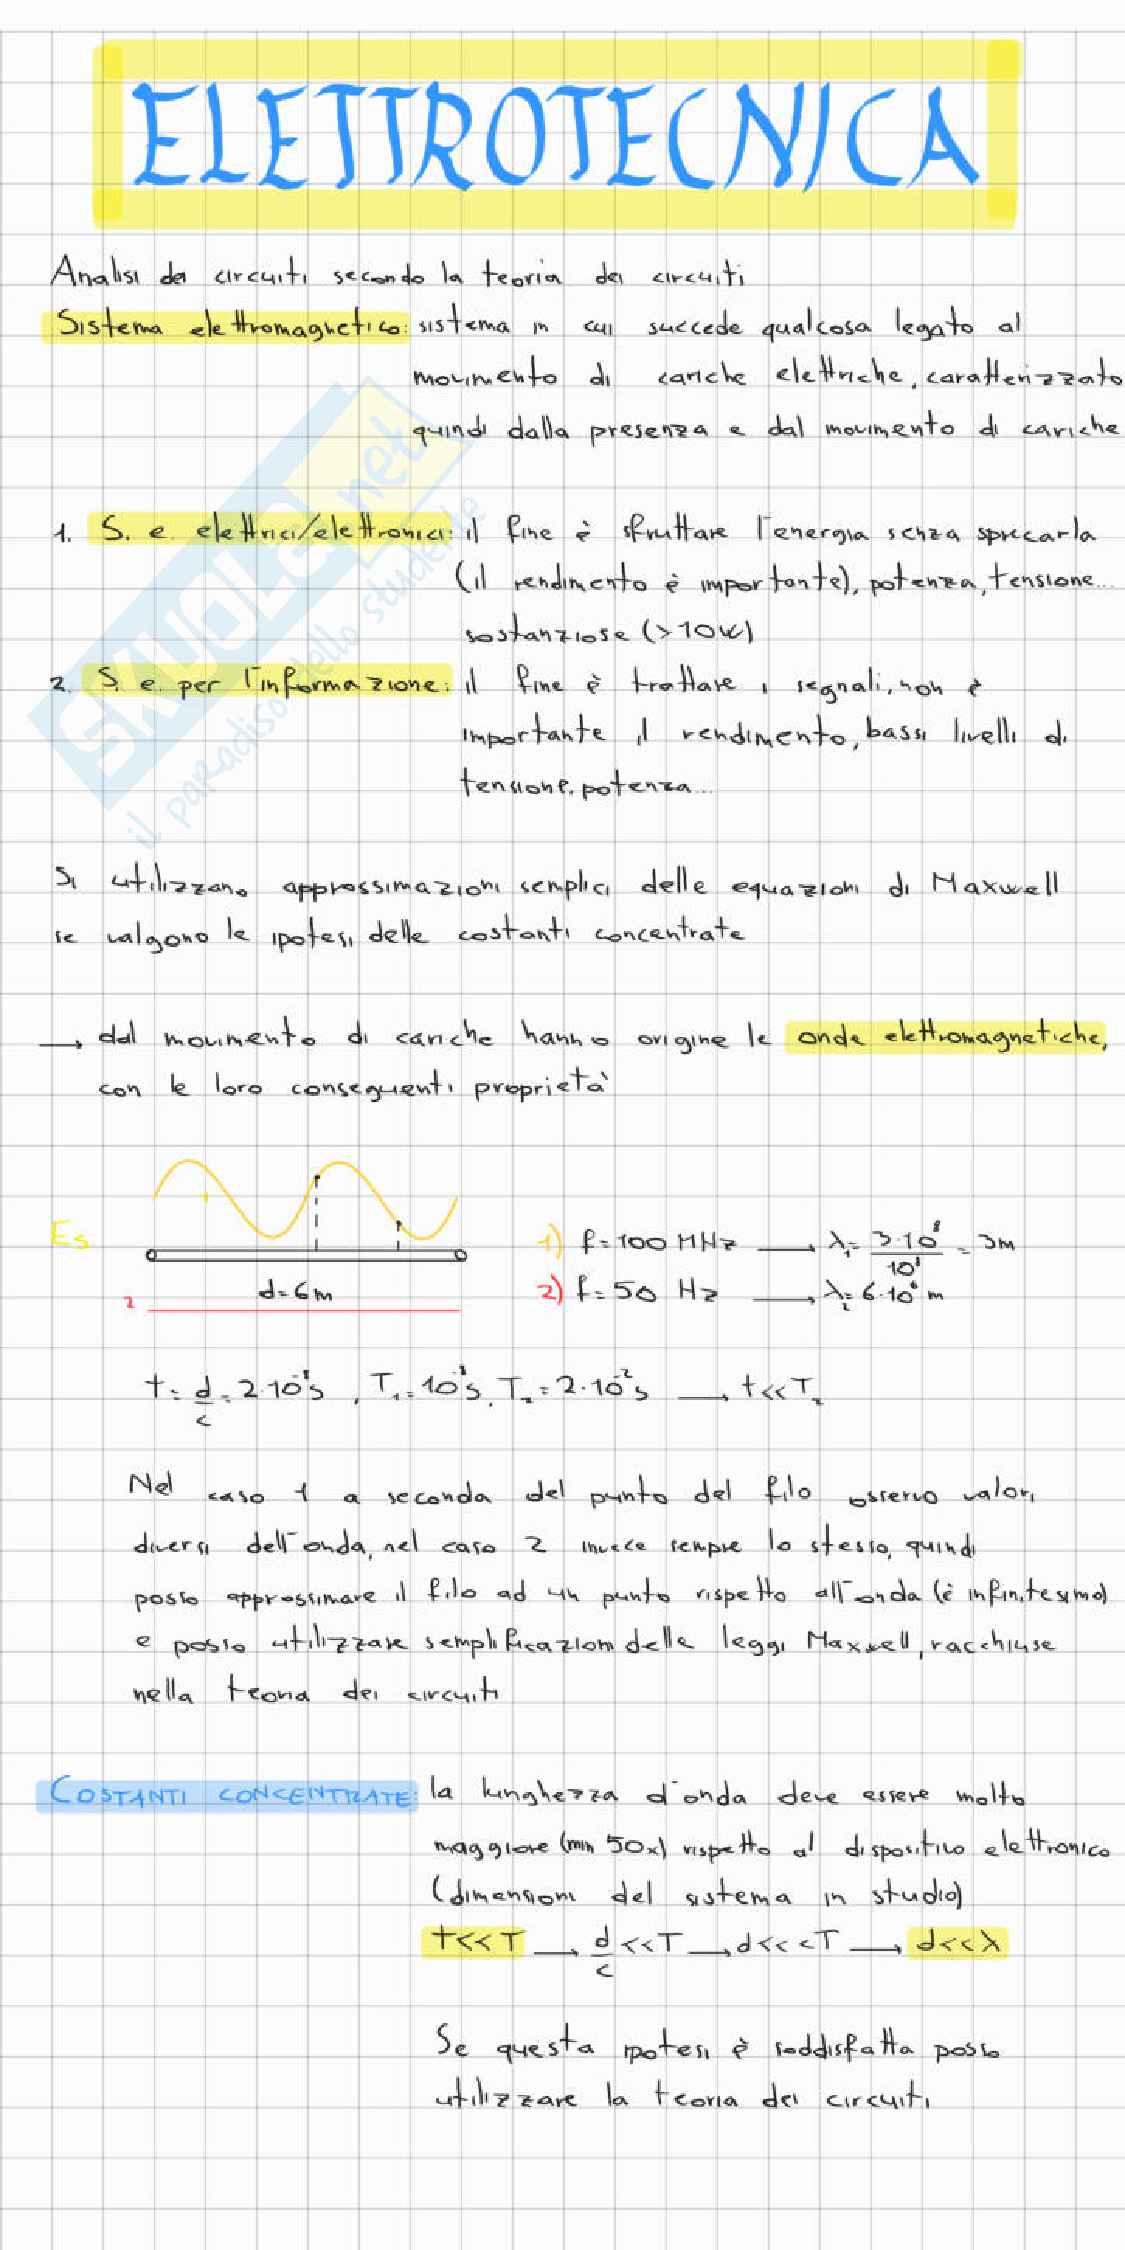 ELETTROTECNICA
Analisi dei circuiti secondo la teoria dei circuiti
Sistema elettromagnetico: sistema in cui succede qualcosa legato al
movimento di cariche elettriche, caratterizzato
quindi dalla presenza e dal movimento di cariche
1. S. e. elettrici/elettronici: il fine è sfruttare l'energia senza sprecarla
(il rendimento è importante), potenza, tensione...
sostanziose (>10W)
2. S. e. per l'informazione: il fine è trattare i segnali, non è
importante il rendimento, bassi livelli di
tensione, potenza...
SKUOLA.net
il paradiso dello studente
Si utilizzano approssimazioni semplici delle equazioni di Maxwell
se valgono le ipotesi delle costanti concentrate
→ dal movimento di cariche hanno origine le onde elettromagnetiche,
con le loro conseguenti proprietà
Es
1) f=100 MHz → λ₁= 3·10⁸/10⁸ = 3m
d=6m
2
2) f=50 Hz → λ₂= 6·10⁶ m
t= d/c = 2·10⁻⁸s, T₁=10⁻⁸s, T₂=2·10⁻²s → t<<T₂
Nel caso 1 a seconda del punto del filo osservo valori
diversi dell'onda, nel caso 2 invece sempre lo stesso, quindi
posso approssimare il filo ad un punto rispetto all'onda (è infinitesimo)
e posso utilizzare semplificazioni delle leggi Maxwell, racchiuse
nella teoria dei circuiti
COSTANTI CONCENTRATE: la lunghezza d'onda deve essere molto
maggiore (min 50x) rispetto al dispositivo elettronico
(dimensioni del sistema in studio)
t<<T → d/c <<T → d<<cT → d<<λ
Se questa ipotesi è soddisfatta posso
utilizzare la teoria dei circuiti